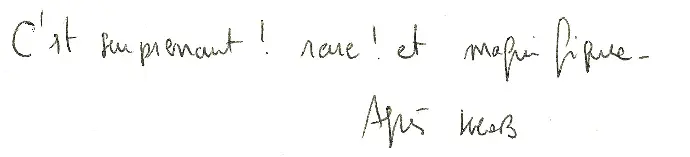 C'est surprenant ! rare ! et magnifique -
Agnès